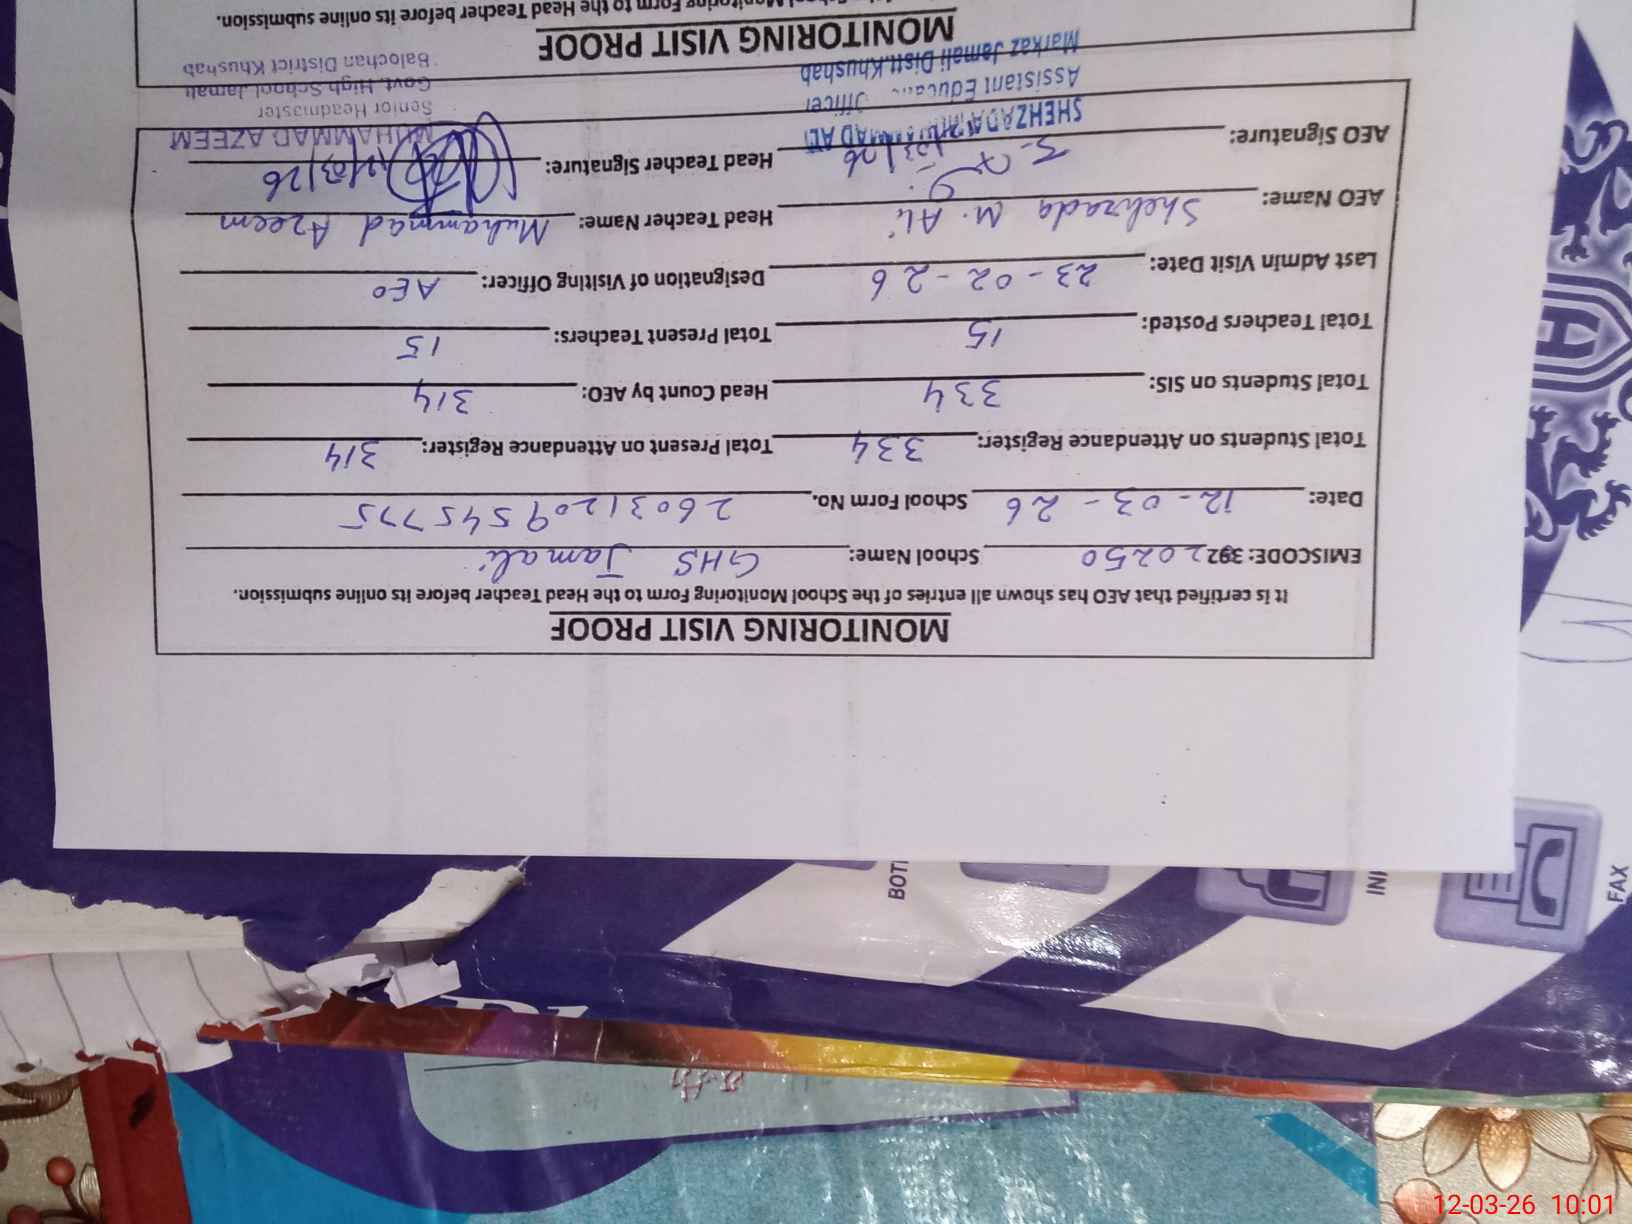 MONITORING VISIT PROOF
It is certified that AEO has shown all entries of the School Monitoring Form to the Head Teacher before its online submission.
EMISCODE: 39220250 School Name: GHS Jamali
Date: 12-03-26 School Form No. 26031209545775
Total Students on Attendance Register: 334 Total Present on Attendance Register: 314
Total Students on SIS: 334 Head Count by AEO: 314
Total Teachers Posted: 15 Total Present Teachers: 15
Last Admin Visit Date: 23-02-26 Designation of Visiting Officer: AEO
AEO Name: Shehzada M. Ali Head Teacher Name: Muhammad Azeem
AEO Signature: Head Teacher Signature: 12/03/26
SHEHZADA MUHAMMAD ALI MUHAMMAD AZEEM
Assistant Education Officer Senior Headmaster
Markaz Jamali Distt. Khushab Govt. High School Jamali
Balochan District Khushab
MONITORING VISIT PROOF
School Monitoring Form to the Head Teacher before its online submission.
BOT
INI
FAX
12-03-26 10:01